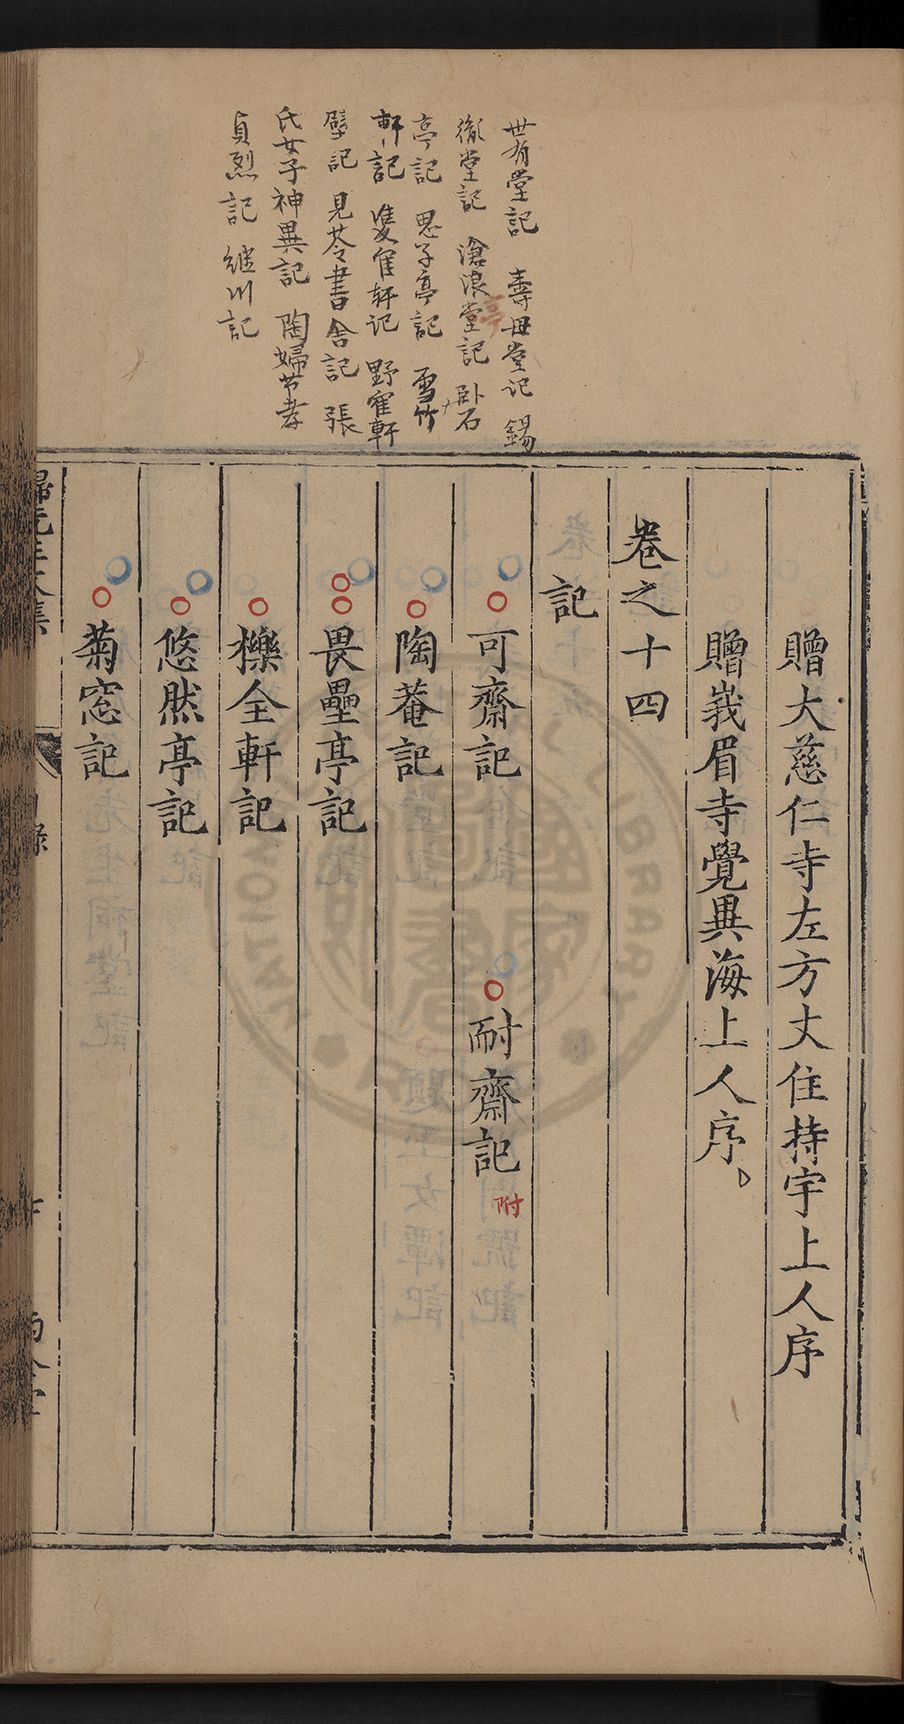 世有堂記　壽母堂记　錫
徵堂記　滄浪堂記　卧石
亭
亭記　思子亭記　雪竹
軒記　雙隺軒记　野隺軒
壁記　見苓書舍記　張
氏女子神異記　陶婦节孝
貞烈記　継川記
贈大慈仁寺左方丈住持宇上人序
贈峩眉寺覺異海上人序
卷之十四
記
可齋記　耐齋記
附
陶菴記
畏壘亭記
櫟全軒記
悠然亭記
菊窓記